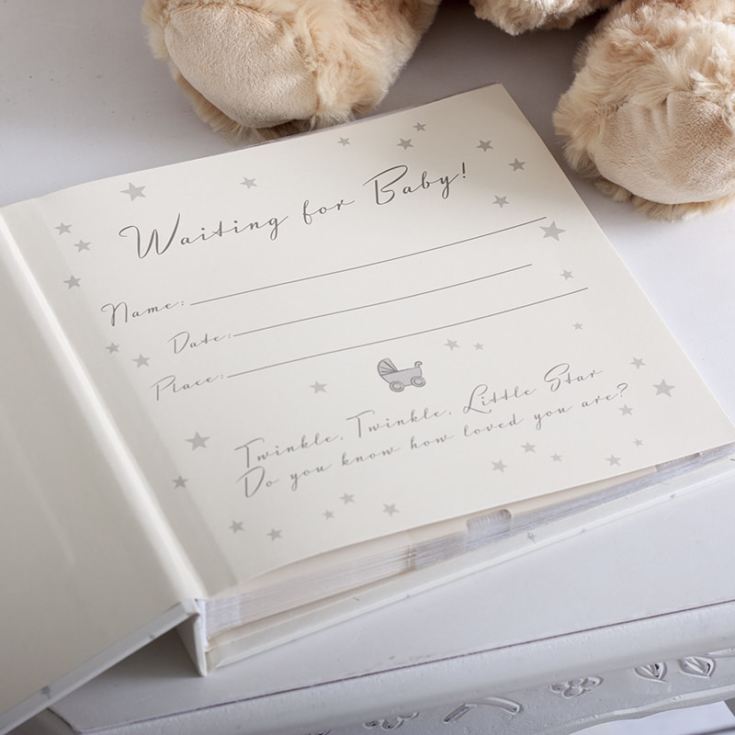 Waiting for Baby!
Name:
Date:
Place:
Twinkle, Twinkle, Little Star
Do you know how loved you are?